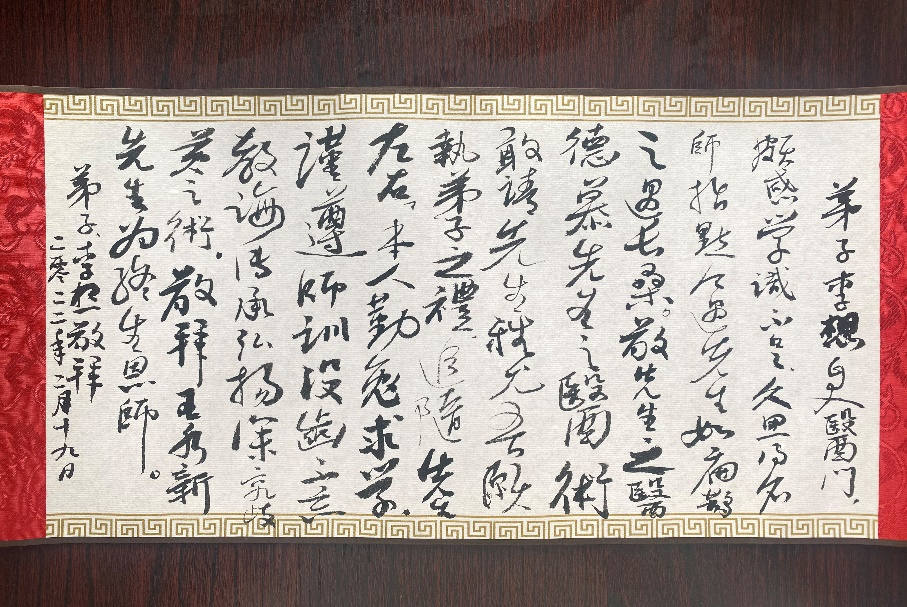 弟子李想自入醫门，
颇感学識不足、久思得名
師指點今遇先生如扁鵲
之遇長桑。敬先生之醫
德慕先生之醫術
敢請先生雅允吾願
執弟子之禮追隨先生
左右，本人勤勉求学，
謹遵師訓没齒不忘
教誨傳承弘揚深究岐
黄之術，敬拜王新
先生为終生恩師。
弟子、李想敬拜
二零二二年二月十九日